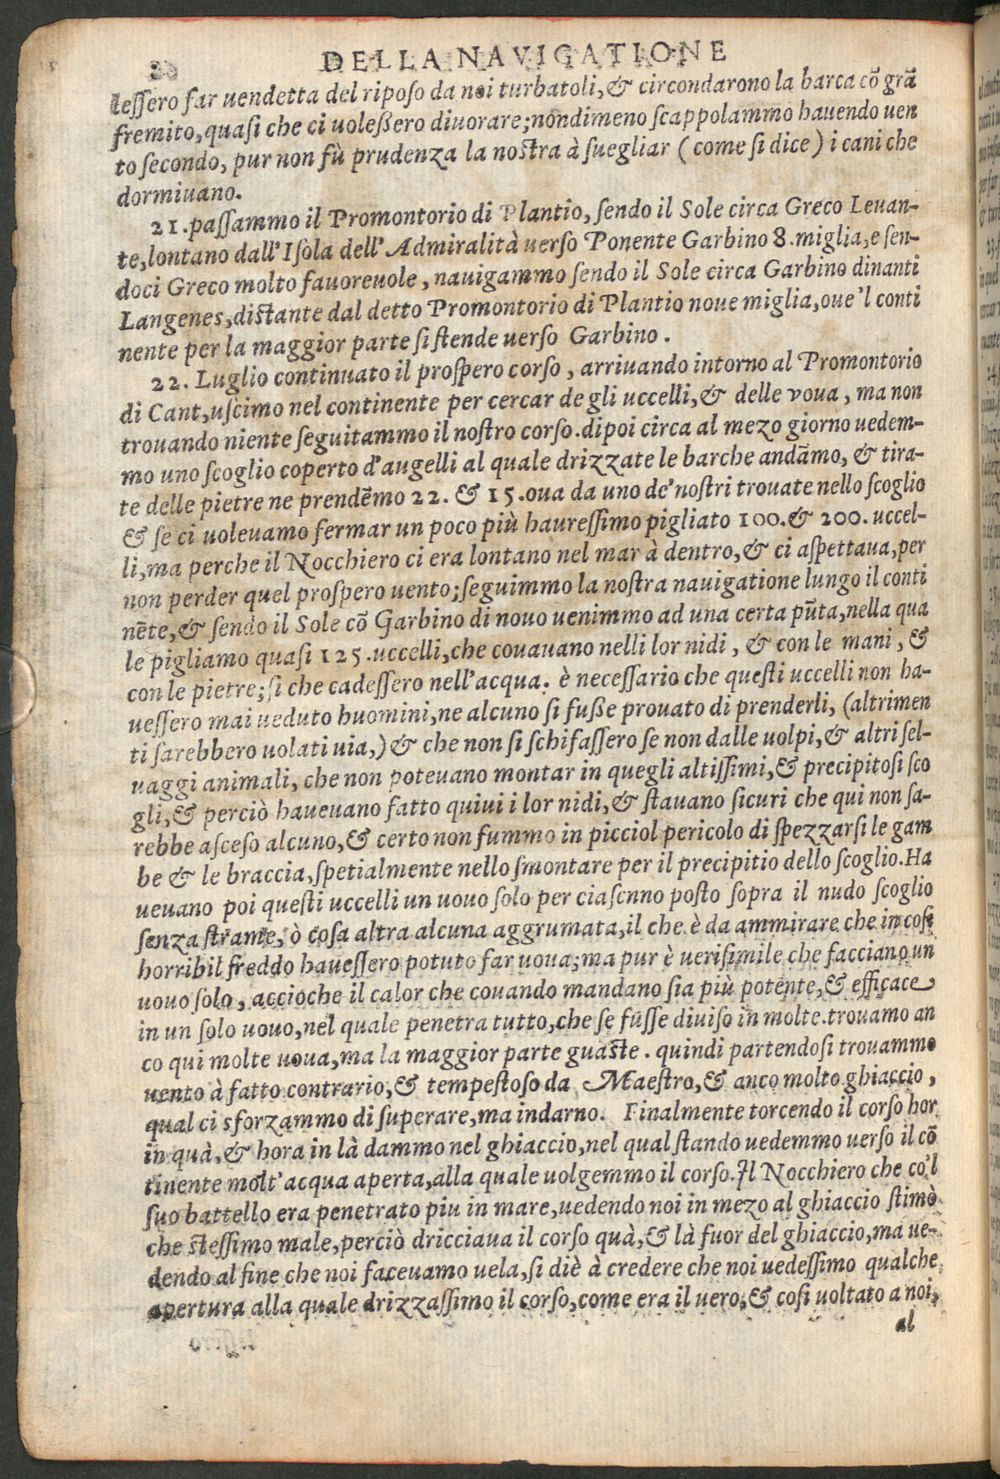 DELLA NAVIGATIONE
lessero far uendetta del riposo da noi turbatoli, & circondarono la barca cõ grã
fremito, quasi che ci uoleßero diuorare; nondimeno scappolammo hauendo uen
to secondo, pur non fù prudenza la nostra à suegliar (come si dice) i cani che
dormiuano.
21. passammo il Promontorio di Plantio, sendo il Sole circa Greco Leuan-
te, lontano dall'Isola dell'Admiralità uerso Ponente Garbino 8. miglia, e sen-
doci Greco molto fauoreuole, nauigammo sendo il Sole circa Garbino dinanti
Langenes, distante dal detto Promontorio di Plantio noue miglia, oue'l conti
nente per la maggior parte si stende uerso Garbino.
22. Luglio continuato il prospero corso, arriuando intorno al Promontorio
di Cant, uscimo nel continente per cercar de gli uccelli, & delle voua, ma non
trouando niente seguitammo il nostro corso. dipoi circa al mezo giorno uedem-
mo uno scoglio coperto d'augelli al quale drizzate le barche andãmo, & tira-
te delle pietre ne prendẽmo 22. & 15. oua da uno de'nostri trouate nello scoglio
& se ci uoleuamo fermar un poco più hauressimo pigliato 100. & 200. uccel-
li, ma perche il Nocchiero ci era lontano nel mar à dentro, & ci aspettaua, per
non perder quel prospero uento; seguimmo la nostra nauigatione lungo il conti
nẽte, & sendo il Sole cõ Garbino di nouo uenimmo ad una certa pũta, nella qua
le pigliamo quasi 125. uccelli, che couauano nelli lor nidi, & con le mani, &
con le pietre; si che cadessero nell'acqua. è necessario che questi uccelli non ha-
uessero mai ueduto huomini, ne alcuno si fuße prouato di prenderli, (altrimen
ti sarebbero uolati uia,) & che non si schifassero se non dalle uolpi, & altri sel-
uaggi animali, che non poteuano montar in quegli altissimi, & precipitosi sco
gli, & perciò haueuano fatto quiui i lor nidi, & stauano sicuri che qui non sa-
rebbe asceso alcuno, & certo non fummo in picciol pericolo di spezzarsi le gam
be & le braccia, spetialmente nello smontare per il precipitio dello scoglio. Ha
ueuano poi questi uccelli un uouo solo per ciascnno posto sopra il nudo scoglio
senza strame, ò cosa altra alcuna aggrumata, il che è da ammirare che in cosi
horribil freddo hauessero potuto far uoua; ma pur è uerisimile che facciano un
uouo solo, accioche il calor che couando mandano sia più potente, & efficace
in un solo uouo, nel quale penetra tutto, che se fusse diuiso in molte. trouamo an
co qui molte uoua, ma la maggior parte guaste. quindi partendosi trouammo
uento à fatto contrario, & tempestoso da Maestro, & anco molto ghiaccio,
qual ci sforzammo di superare, ma indarno. Finalmente torcendo il corso hor
in quà, & hora in là dammo nel ghiaccio, nel qual stando uedemmo uerso il cõ
tinente molt'acqua aperta, alla quale uolgemmo il corso. Il Nocchiero che co'l
suo battello era penetrato piu in mare, uedendo noi in mezo al ghiaccio stimò
che stessimo male, perciò dricciaua il corso quà, & là fuor del ghiaccio, ma ue-
dendo al fine che noi faceuamo uela, si diè à credere che noi uedessimo qualche
apertura alla quale drizzassimo il corso, come era il uero, & cosi uoltato a noi,
al